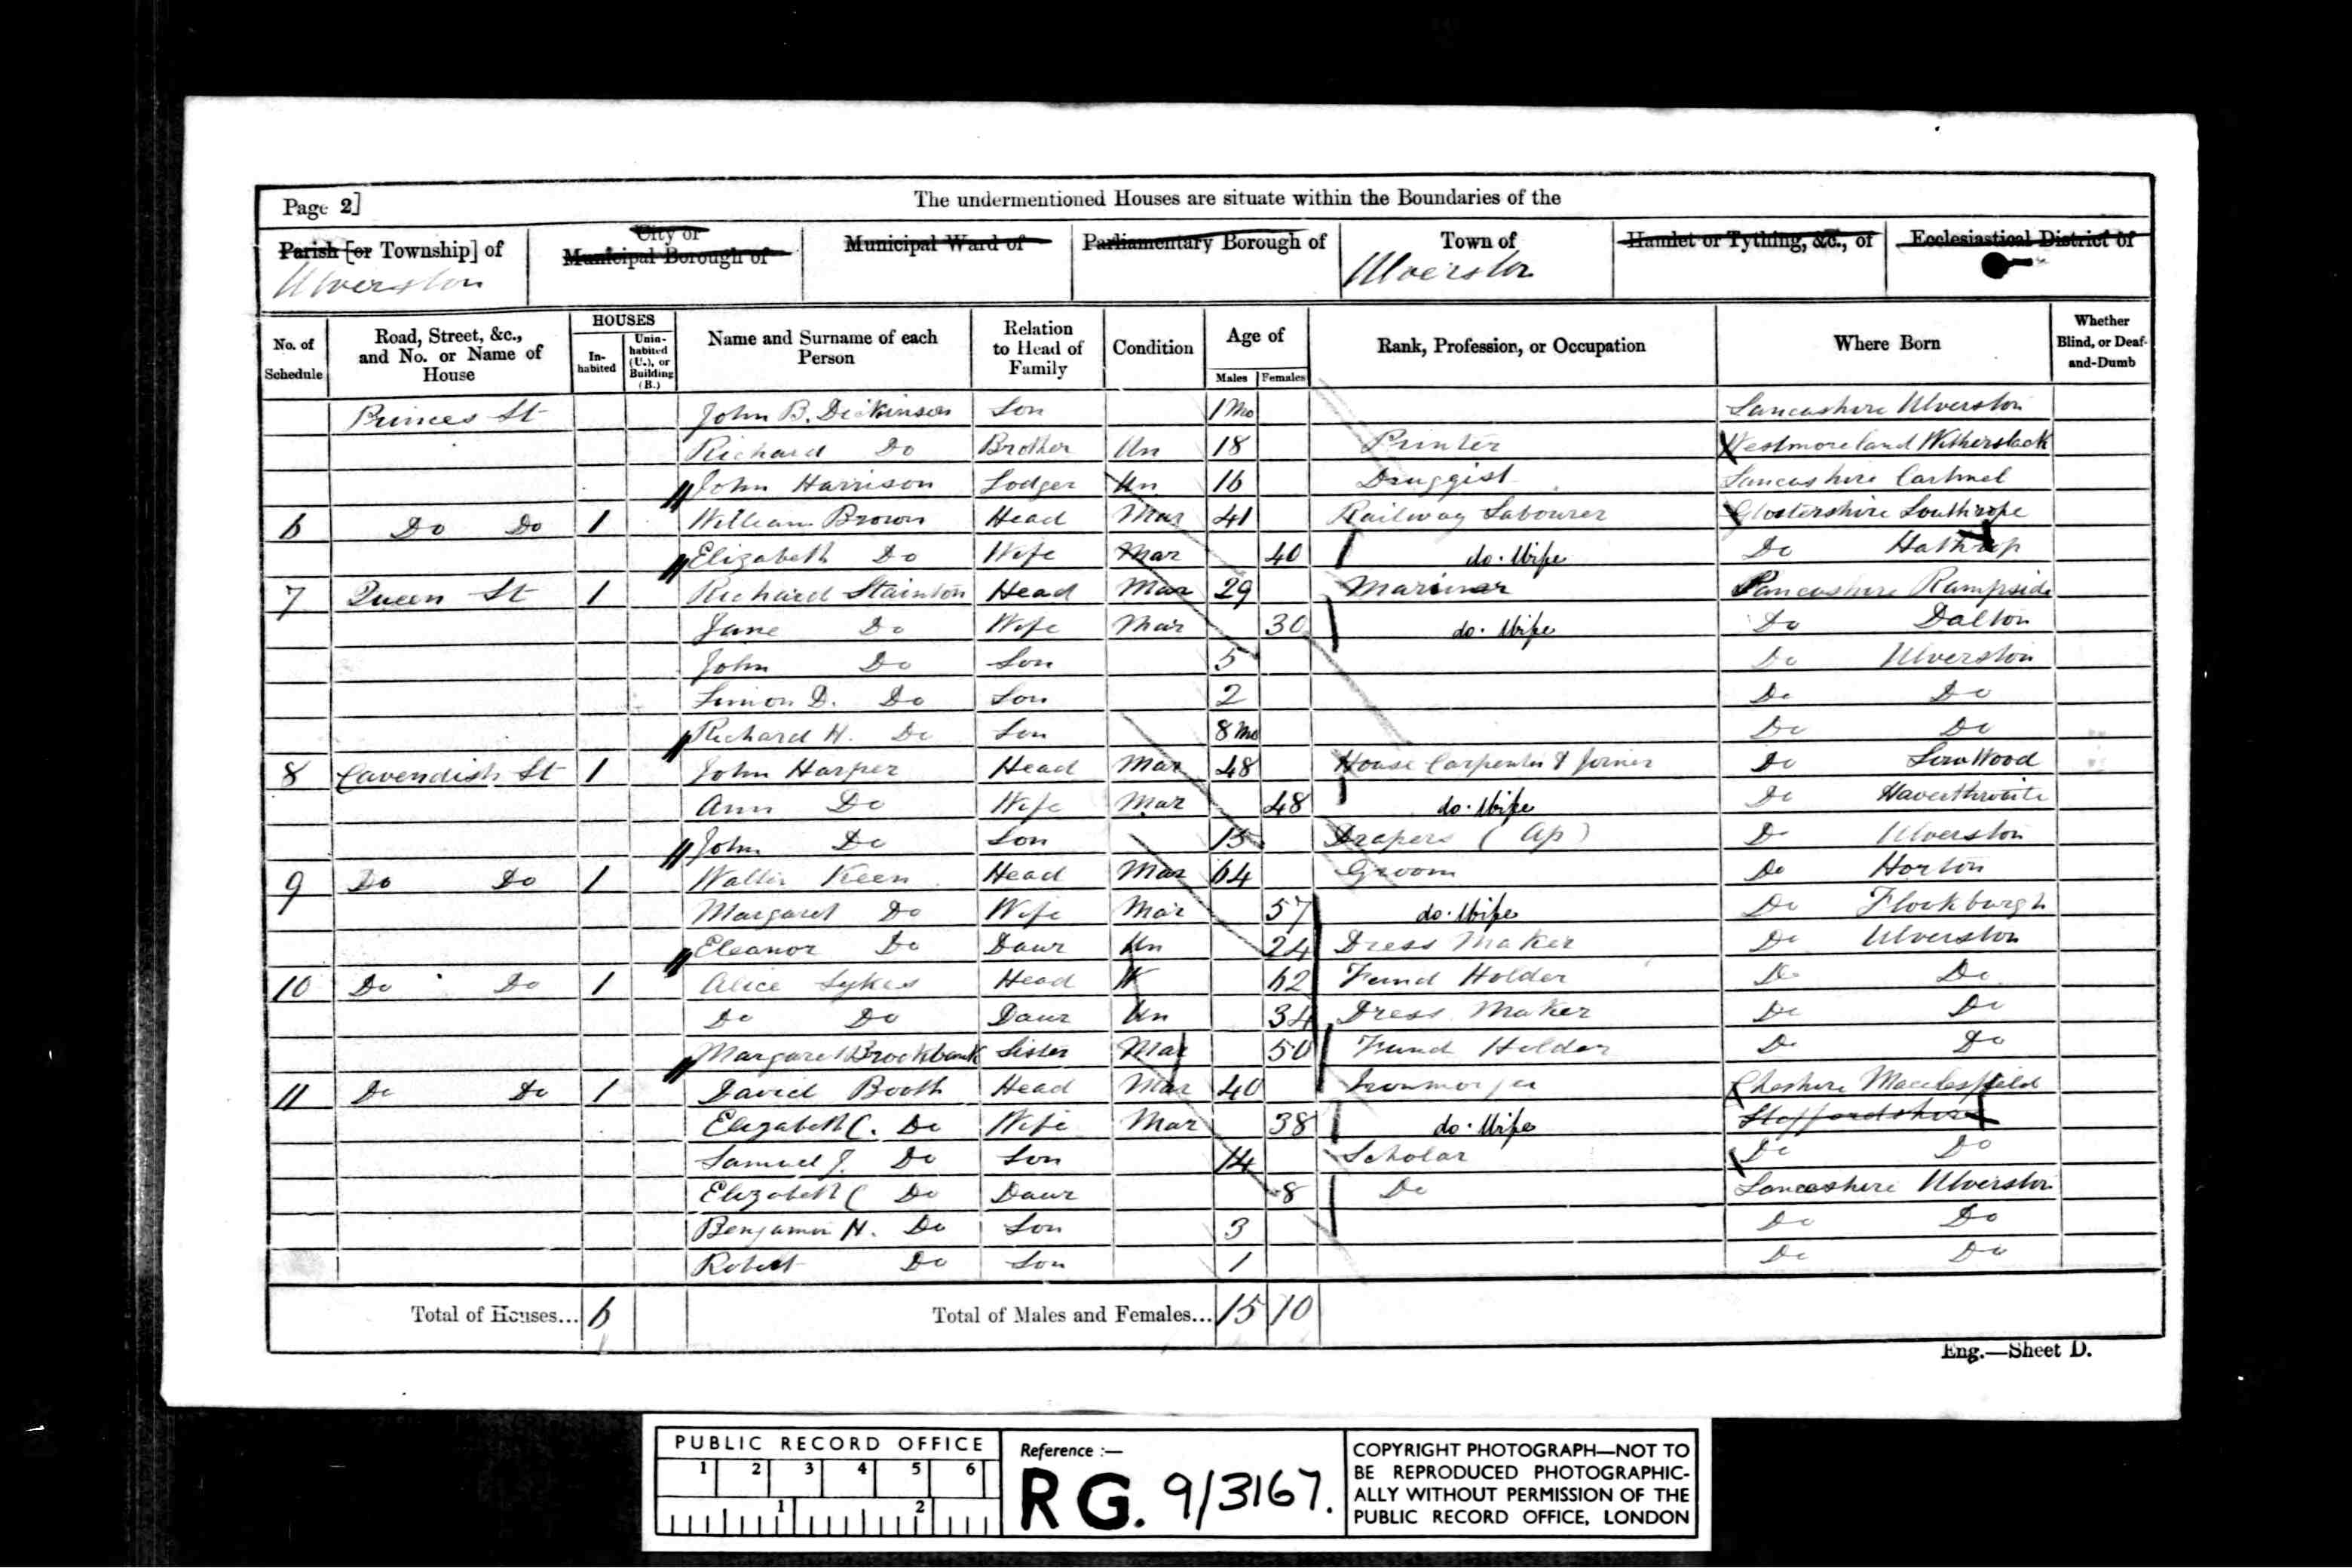 Page 2]
The undermentioned Houses are situate within the Boundaries of the
Parish [or Township] of Ulverston
City or Municipal Borough of
Municipal Ward of
Parliamentary Borough of
Town of Ulverston
Hamlet or Tything, &c., of
Ecclesiastical District of
No. of Schedule
Road, Street, &c., and No. or Name of House
HOUSES
Inhabited
Uninhabited (U.), or Building (B.)
Name and Surname of each Person
Relation to Head of Family
Condition
Age of
Males Females
Rank, Profession, or Occupation
Where Born
Whether Blind, or Deaf-and-Dumb
Princes St John B. Dickinson Son 1 Mo Lancashire Ulverston
Richard Do Brother Un 18 Printer Westmoreland Witherslack
John Harrison Lodger Un 16 Druggist Lancashire Cartmel
6 Do Do 1 William Brown Head Mar 41 Railway Labourer Glostershire Southrope
Elizabeth Do Wife Mar 40 do. Wife Do Hathrop
7 Queen St 1 Richard Stainton Head Mar 29 Mariner Lancashire Rampside
Jane Do Wife Mar 30 do. Wife Do Dalton
John Do Son 5 Do Ulverston
Simon D. Do Son 2 Do Do
Richard H. Do Son 8 Mo Do Do
8 Cavendish St 1 John Harper Head Mar 48 House Carpenter & Joiner Do Low Wood
Ann Do Wife Mar 48 do. Wife Do Haverthwaite
John Do Son 15 Drapers (Ap) Do Ulverston
9 Do Do 1 Walter Keen Head Mar 64 Groom Do Horton
Margaret Do Wife Mar 57 do. Wife Do Flookburgh
Eleanor Do Daur Un 24 Dress Maker Do Ulverston
10 Do Do 1 Alice Sykes Head W 62 Fund Holder Do Do
Do Do Daur Un 34 Dress Maker Do Do
Margaret Brockbank Sister Mar 50 Fund Holder Do Do
11 Do Do 1 David Booth Head Mar 40 Ironmonger Cheshire Macclesfield
Elizabeth C. Do Wife Mar 38 do. Wife Staffordshire
Samuel J. Do Son 14 Scholar Do Do
Elizabeth C Do Daur 8 Do Lancashire Ulverston
Benjamin H. Do Son 3 Do Do
Robert Do Son 1 Do Do
Total of Houses... 6 Total of Males and Females... 15 10
Eng.—Sheet D.
PUBLIC RECORD OFFICE
1 2 3 4 5 6
1 2
Reference :—
RG. 9/3167.
COPYRIGHT PHOTOGRAPH—NOT TO
BE REPRODUCED PHOTOGRAPHIC-
ALLY WITHOUT PERMISSION OF THE
PUBLIC RECORD OFFICE, LONDON